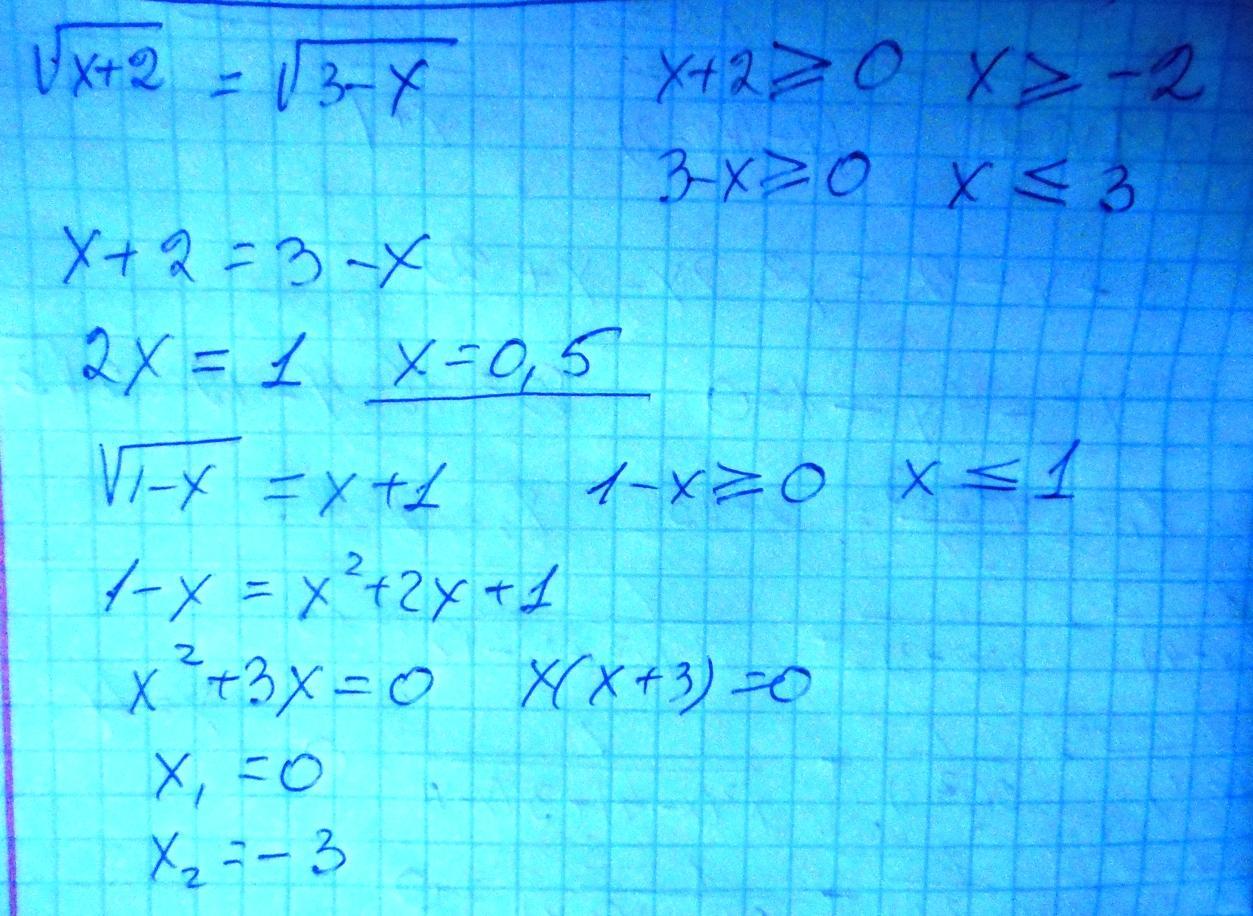 √x+2 = √3-x x+2⩾0 x⩾-2
3-x⩾0 x≤3
x+2=3-x
2x=1 x=0,5
√1-x = x+1 1-x⩾0 x≤1
1-x = x²+2x+1
x²+3x=0 x(x+3)=0
x₁=0
x₂=-3